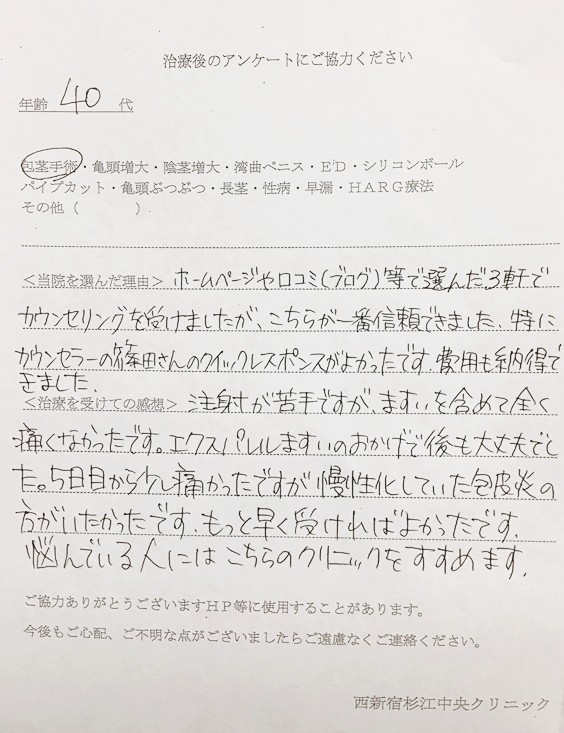 治療後のアンケートにご協力ください
年齢 40 代
包茎手術・亀頭増大・陰茎増大・湾曲ペニス・ED・シリコンボール
パイプカット・亀頭ぶつぶつ・長茎・性病・早漏・HARG療法
その他（　　　）
＜当院を選んだ理由＞ ホームページや口コミ(ブログ)等で選んだ3軒で
カウンセリングを受けましたが、こちらが一番信頼できました。特に
カウンセラーの篠田さんのクイックレスポンスがよかったです。費用も納得で
きました。
＜治療を受けての感想＞ 注射が苦手ですが、ますいを含めて全く
痛くなかったです。エクスパレルますいのおかげで後も大丈夫でし
た。5日目から少し痛かったですが慢性化していた包皮炎の
方がいたかったです。もっと早く受ければよかったです。
悩んでいる人にはこちらのクリニックをすすめます。
ご協力ありがとうございますHP等に使用することがあります。
今後もご心配、ご不明な点がございましたらご遠慮なくご連絡ください。
西新宿杉江中央クリニック